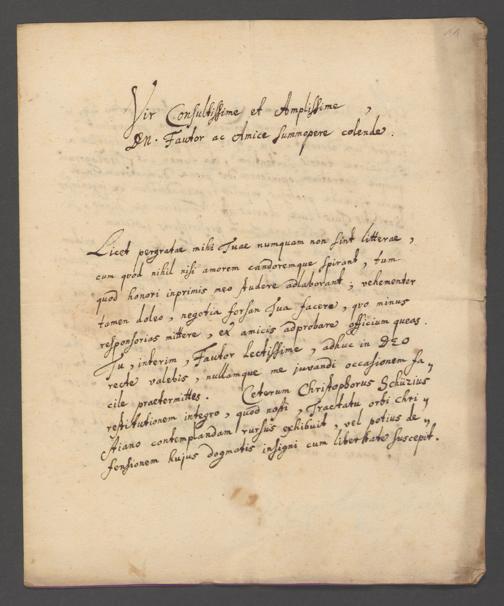 Vir Consultissime et Amplissime,
DN. Fautor ac Amice summopere colende.
Licet pergratae mihi Tuae numquam non sint litterae,
cum quod nihil nisi amorem candoremque spirant, tum
quod honori inprimis meo studere adlaborant, vehementer
tamen doleo, negotia forsan Tua facere, quo minus
responsorias mittere, et amicis adprobare officium queas.
Tu, interim, Fautor lectissime, adhuc in DEO
recte valebis, nullamque me juvandi occasionem fa„
cile praetermittes. Ceterum Christophorus Schüzius
restitutionem integro, quod nosti, Tractatu orbi chri„
stiano contemplandam rursus exhibuit, vel potius de„
fensionem hujus dogmatis insigni cum libertate suscepit.